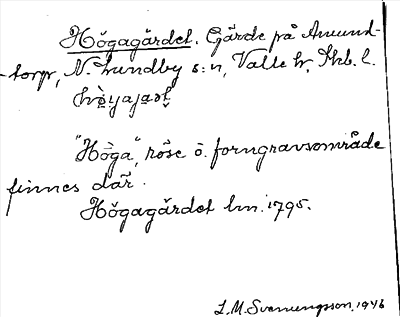 Högagärdet. Gärde på Amund-
torp, N. Lundby s:n, Valle h, Skb. l.
"Höga", röse o. forngravsområde
finnes där.
Högagärdet lm. 1795.
L.M. Svenungsson, 1946